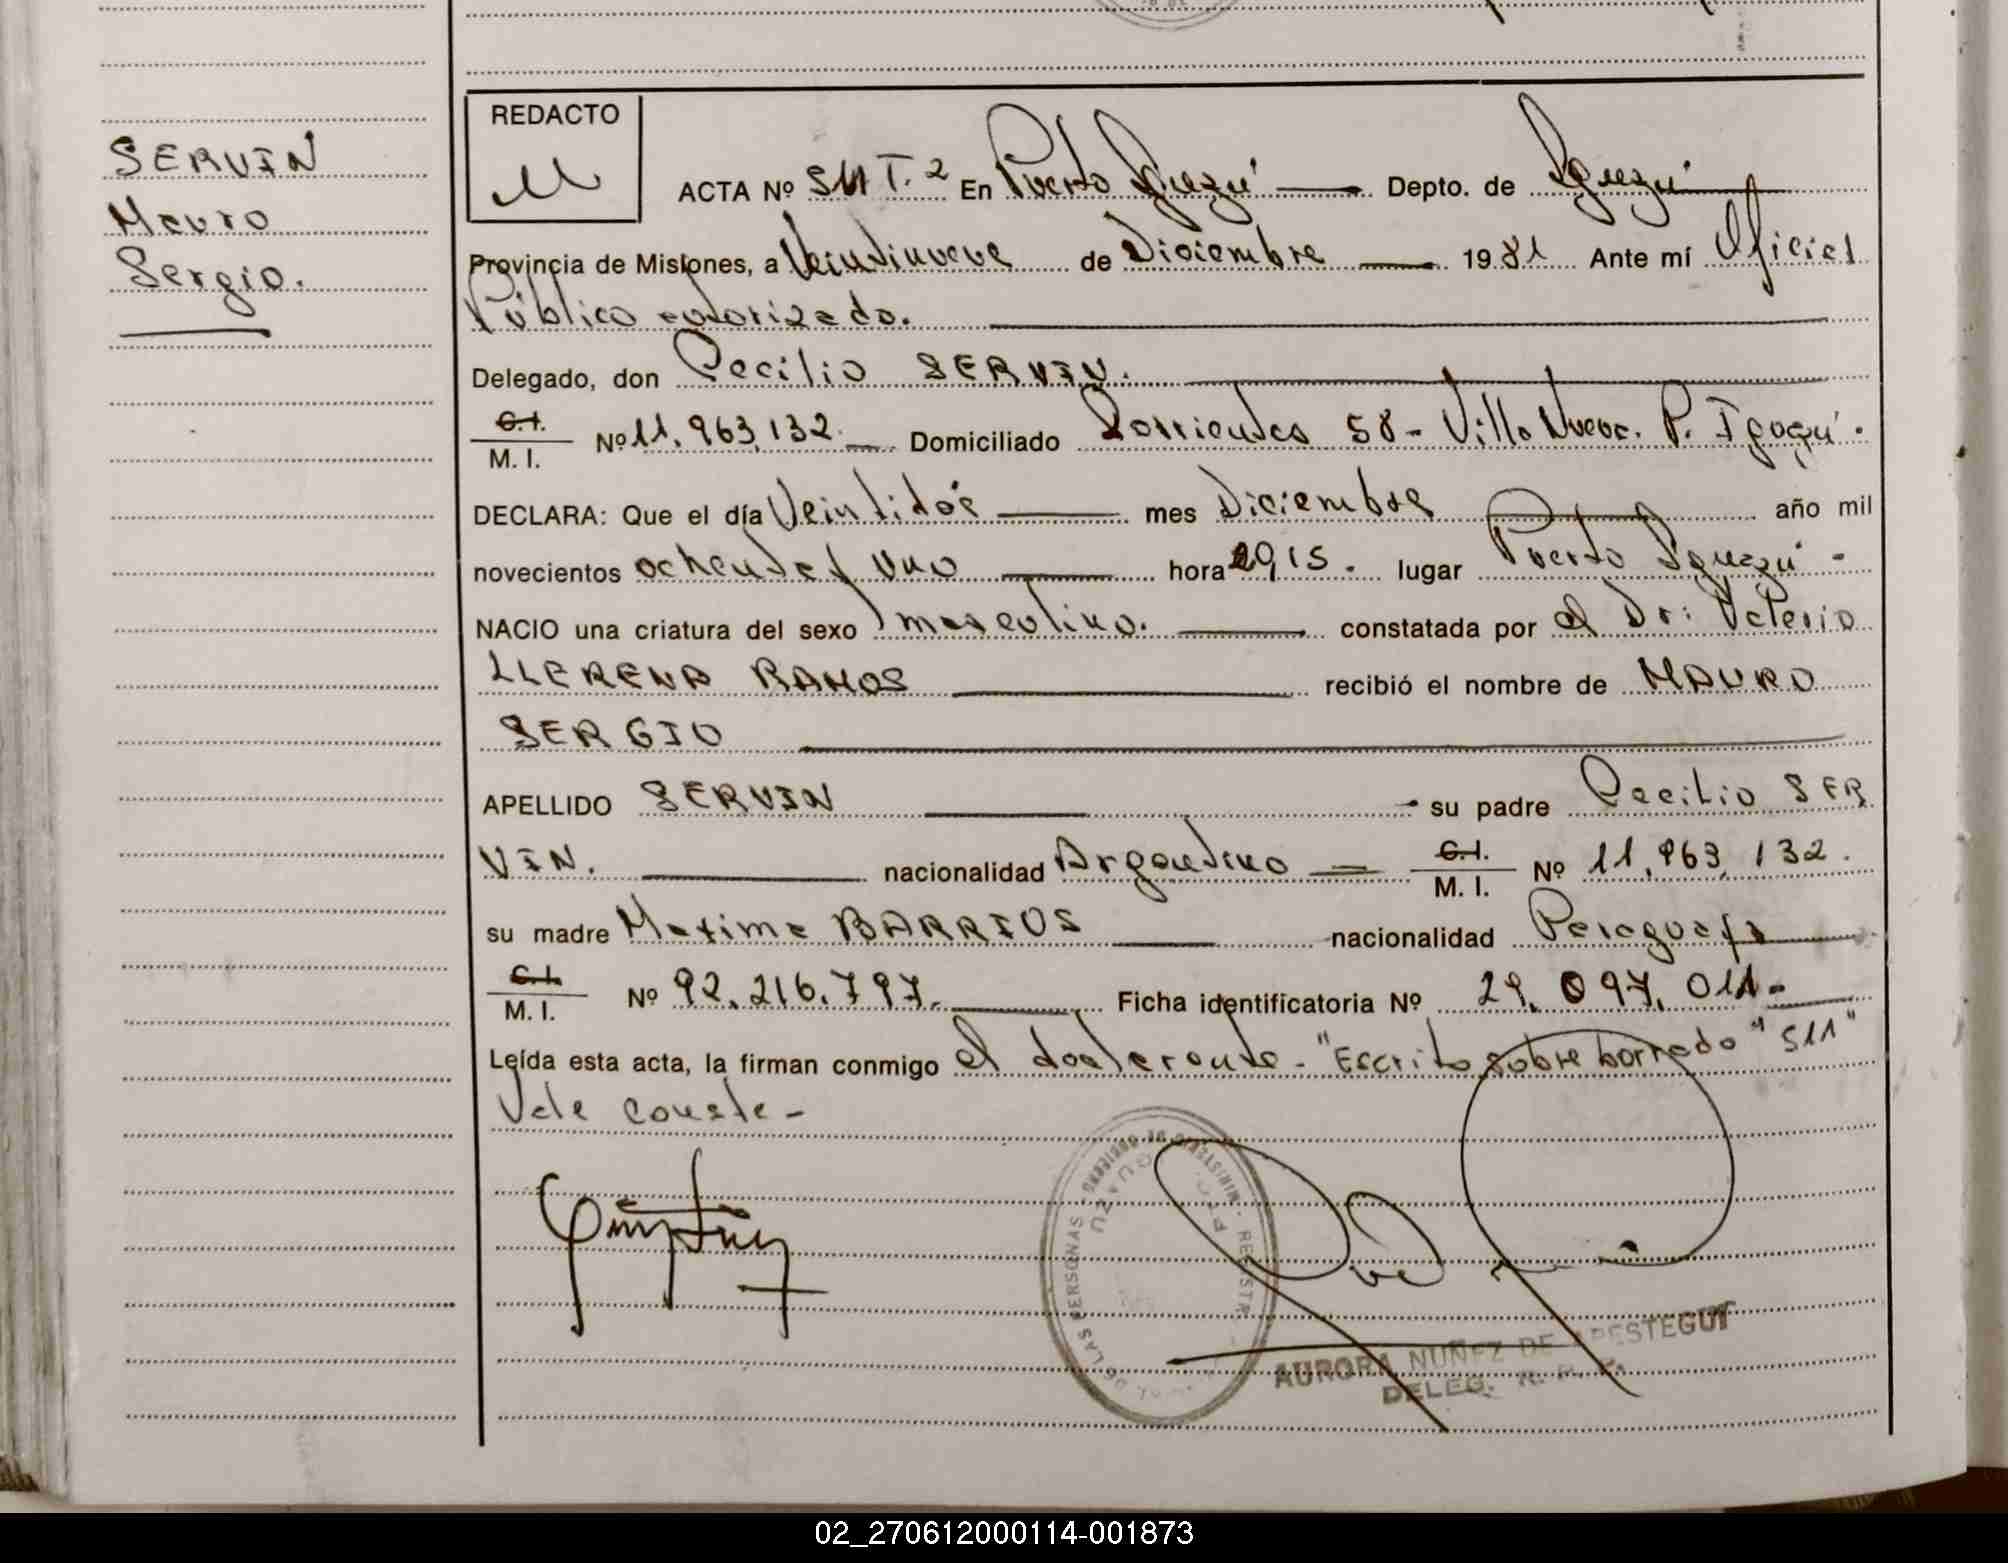 SERVIN
Mauro
Sergio.
REDACTO
ACTA Nº 511 T. 2 En Puerto Iguazú Depto. de Iguazú
Provincia de Misiones, a Veintinueve de Diciembre 1981 Ante mí Oficial
Público autorizado.
Delegado, don Cecilio SERVIN.
C.I. M. I. Nº 11.963.132. Domiciliado Corrientes 58 - Villa Nueva. P. Iguazú.
DECLARA: Que el día Veintidós mes Diciembre año mil
novecientos ochenta y uno hora 20,15. lugar Puerto Iguazú -
NACIO una criatura del sexo masculino. constatada por el Dr: Valerio
LLERENA RAMOS recibió el nombre de MAURO
SERGIO
APELLIDO SERVIN su padre Cecilio SER
VIN. nacionalidad Argentino C.I. M. I. Nº 11.963.132.
su madre Maxima BARRIOS nacionalidad Paraguaya
C.I. M. I. Nº 92.216.797. Ficha identificatoria Nº 29.097.011-
Leída esta acta, la firman conmigo el declarante - "Escrito sobre borrado "511"
Vale conste -
MINISTERIO DE GOBIERNO - REGISTR DE LAS PERSONAS
AURORA NUÑEZ DE APESTEGUI
DELEG. R. P.
02_270612000114-001873